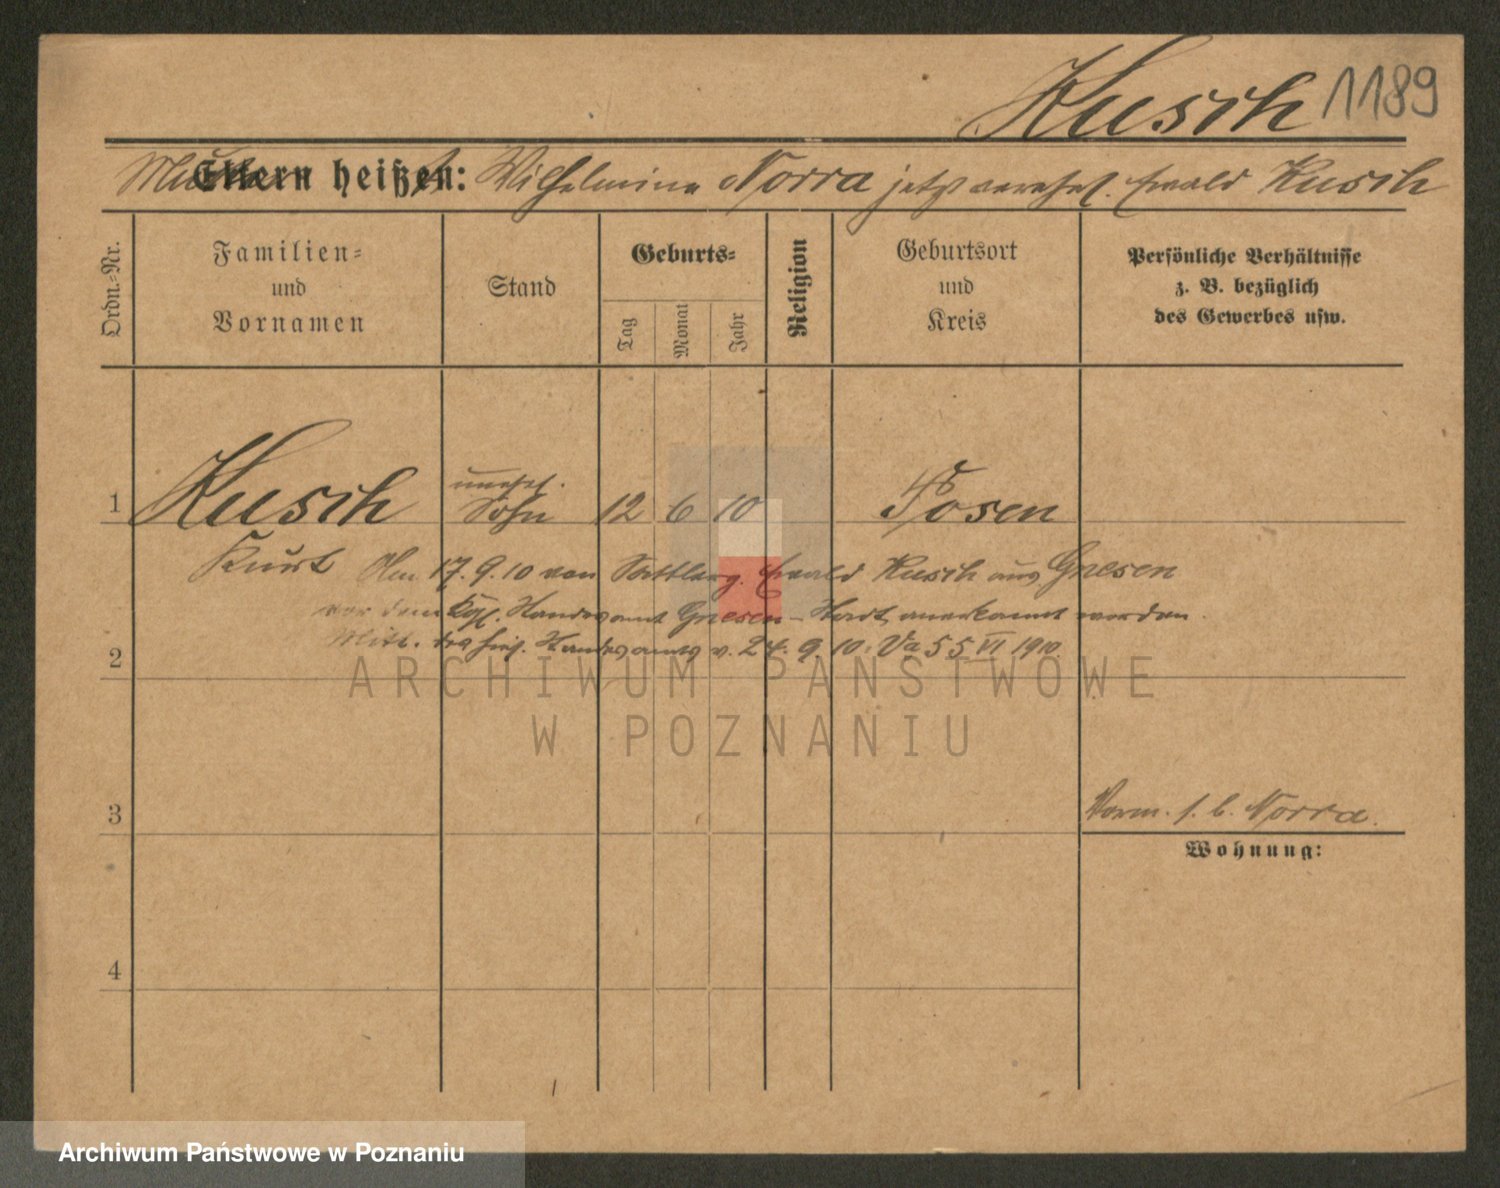 Kusch 1189
Mutter Eltern heißt: Wilhelmine Norra jetzt verehel. Ewald Kusch
Ordn.-Nr.
Familien-
und
Vornamen
Stand
Geburts-
Tag
Monat
Jahr
Religion
Geburtsort
und
Kreis
Persönliche Verhältnisse
z. B. bezüglich
des Gewerbes usw.
unehel.
1 Kusch Sohn 12 6 10 Posen
Kurt Am 17.9.10 von Ewald Kusch aus Gnesen
vor dem Kgl. Standesamt Gnesen-Stadt anerkannt worden.
2 Mitt. des hies. Standesamts v. 24. 9. 10. Va 55 VI 1910
ARCHIWUM PAŃSTWOWE
W POZNANIU
3 Vorm. s. b. Norra.
Wohnung:
4
Archiwum Państwowe w Poznaniu